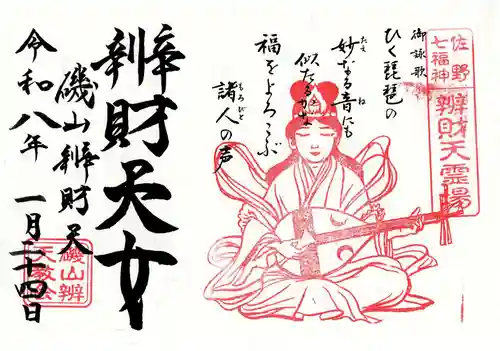 佐野
七福神
辨財天霊場
御詠歌
ひく琵琶の
妙なる音にも
たえ
ね
似たるかな
福をよろこぶ
諸人の声
もろびと
辨財天女
磯山辨財天
令和八年
一月二十四日
磯山辨
天教会